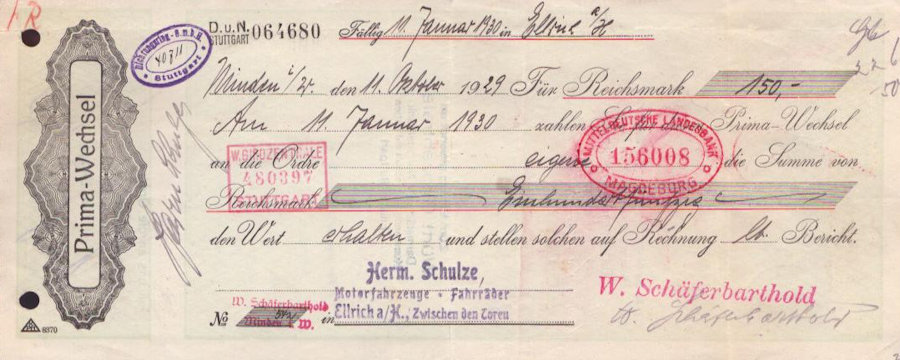 D.u.N.
STUTTGART 064680
Fällig 11. Januar 1930 in Ellrich a/H
Minden i/W. den 11. Oktober 1929 Für Reichsmark 150,-
Am 11. Januar 1930 zahlen Sie für diesen Prima-Wechsel
an die Ordre eigene die Summe von
Reichsmark Einhundertfünfzig
den Wert erhalten und stellen solchen auf Rechnung lt. Bericht.
Herm. Schulze,
Motorfahrzeuge • Fahrräder
in Ellrich a/H., Zwischen den Toren
№
W. Schäferbarthold
Minden i. W.
W. Schäferbarthold
W. Schäferbarthold
Prima-Wechsel
8370
40711
Stuttgart
W. GIROZENTRALE
480397
STUTTGART
MITTELDEUTSCHE LANDESBANK
156008
MAGDEBURG
Hermann Schulze